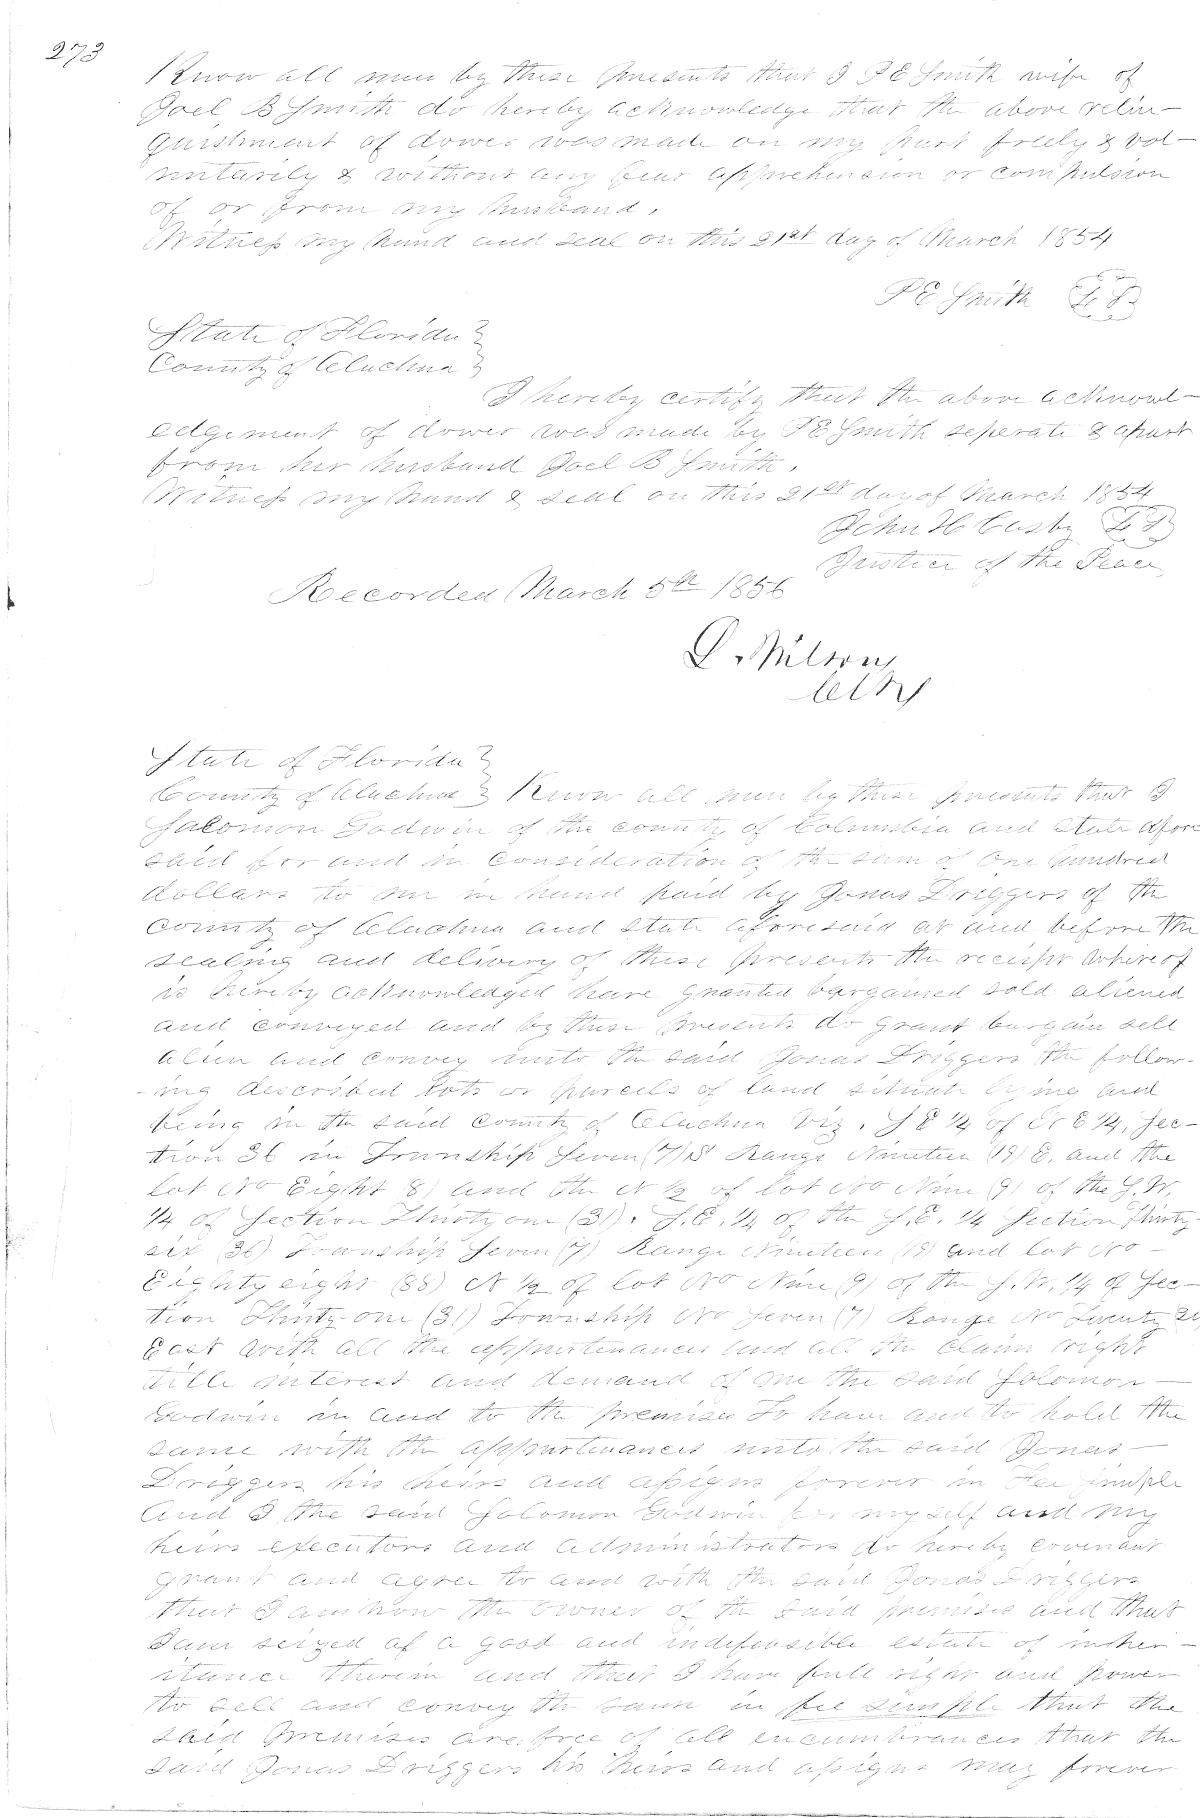 273
Know all men by these presents that I P E Smith wife of
Joel B Smith do hereby acknowledge that the above relin-
quishment of dower was made on my part freely & vol-
untarily & without any fear apprehension or compulsion
of or from my husband.
Witness my hand and seal on this 21st day of March 1854
P E Smith L S
State of Florida }
County of Alachua }
I hereby certify that the above acknowl-
edgement of dower was made by P E Smith seperate & apart
from her husband Joel B Smith.
Witness my hand & seal on this 21st day of March 1854
John H Casby L S
Justice of the Peace
Recorded March 5th 1856
D. Wilson
Clk
State of Florida }
County of Alachua } Know all men by these presents that I
Solomon Godwin of the county of Columbia and state afore
said for and in consideration of the sum of One hundred
dollars to me in hand paid by Jonas Driggers of the
county of Alachua and state aforesaid at and before the
sealing and delivery of these presents the receipt whereof
is hereby acknowledged have granted bargained sold aliened
and conveyed and by these presents do grant bargain sell
alien and convey unto the said Jonas Driggers the follow-
-ing described lots or parcels of land situate lying and
being in the said county of Alachua Viz. S E 1/4 of N E 1/4, Sec-
tion 36 in Township Seven (7) S Range Nineteen (19) E. and the
lot No Eight 8) and the N 1/2 of lot No Nine (9) of the S.W.
1/4 of Section Thirty one (31). S.E. 1/4 of the S.E. 1/4 Section Thirty-
six (36) Township Seven (7) Range Nineteen (19) and lot No -
Eighty eight (88) N 1/2 of lot No Nine (9) of the S.W. 1/4 of Sec-
tion Thirty-one (31) Township No Seven (7) Range No Twenty 20,
East with all the appurtenances and all the claim right
title interest and demand of me the said Solomon -
Godwin in and to the premises To have and to hold the
same with the appurtenances unto the said Jonas -
Driggers his heirs and assigns forever in Fee Simple
And I the said Solomon Godwin for myself and my
heirs executors and administrators do hereby covenant
grant and agree to and with the said Jonas Driggers
that I am now the owner of the said premises and that
I am seized of a good and indefeasible estate of inher-
itance therein and that I have full right and power
to sell and convey the same in fee simple that the
said premises are free of all encumbrances that the
said Jonas Driggers his heirs and assigns may forever